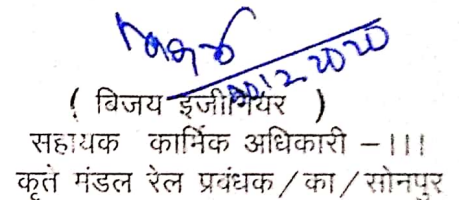 ( विजय इंजीनियर )
सहायक कार्मिक अधिकारी -III
कृते मंडल रेल प्रवंधक/का/सोनपुर